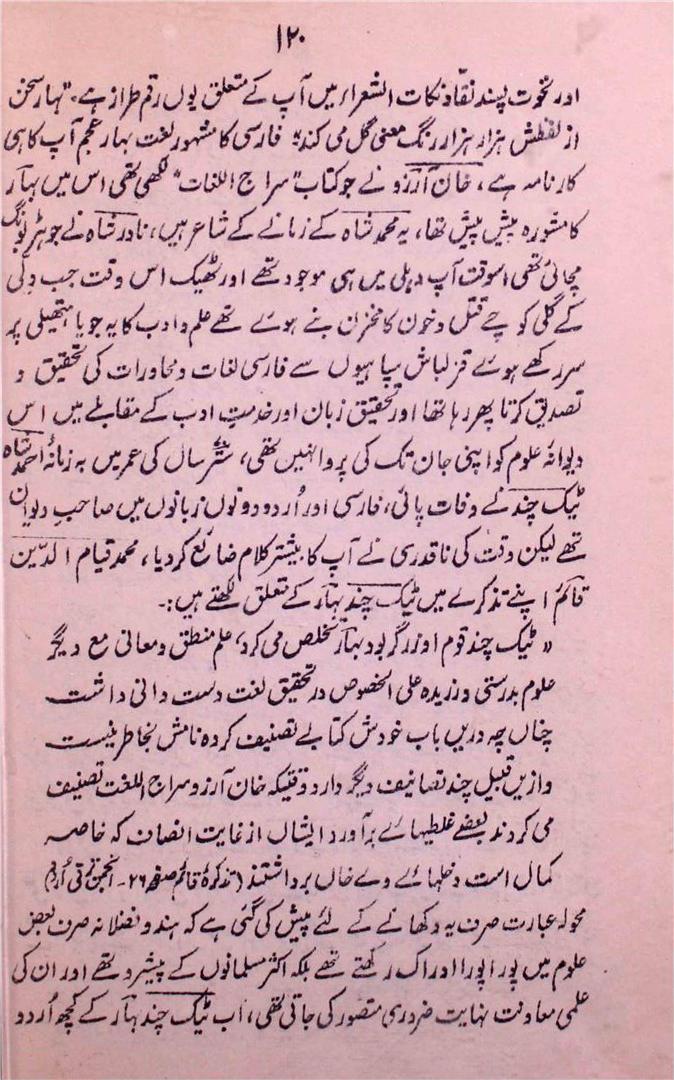 ۱۲۰
اور نخوت پسند نقّاد نکات الشعراء میں آپ کے متعلق یوں رقم طراز ہے۔ "بہار سخن
از لفظش ہزار ہزار رنگ معنی گل می کند" فارسی کا مشہور لغت بہار عجم آپ کا ہی
کارنامہ ہے، خان آرزو نے جو کتاب "سراج اللغات" لکھی تھی اس میں بہار
کا مشورہ پیش پیش تھا، یہ محمد شاہ کے زمانے کے شاعر ہیں، نادر شاہ نے جو ہڑبونگ
مچائی تھی اسوقت آپ دہلی میں ہی موجود تھے اور ٹھیک اس وقت جب دلّی
کے گلی کوچے قتل و خون کا مخزن بنے ہوئے تھے علم و ادب کا یہ جویا ہتھیلی پر
سر رکھے ہوئے قزلباش سپاہیوں سے فارسی لغات و محاورات کی تحقیق و
تصدیق کرتا پھر رہا تھا اور تحقیق زبان اور خدمتِ ادب کے مقابلے میں اس
دیوانۂ علوم کو اپنی جان تک کی پروا نہیں تھی، ستّر سال کی عمر میں بہ زمانۂ احمد شاہ
ٹیک چند نے وفات پائی، فارسی اور اُردو دونوں زبانوں میں صاحبِ دیوان
تھے لیکن وقت کی ناقدری نے آپ کا بیشتر کلام ضائع کر دیا، محمد قیام الدّین
قائم اپنے تذکرے میں ٹیک چند بہار کے متعلق لکھتے ہیں:۔
"ٹیک چند قوم او زرگر بود بہار تخلص می کرد، علم منطق و معانی مع دیگر
علوم بدرستی ورزیدہ علی الخصوص در تحقیق لغت دست دانی داشت
چناں چہ دریں باب خودش کتابے تصنیف کردہ نامش بخاطر نیست
و ازیں قبیل چند تصانیف دیگر دارد وقتیکہ خان آرزو سراج اللغت تصنیف
می کردند بعضے غلطیہائے برآورد ایشاں از غایت انصاف کہ خاصہ
کمال است دخلہائے وے خاں برداشتند (تذکرۂ قائم صفحہ ۲۶۔ انجمن ترقی اُردو)
محولہ عبارت صرف یہ دکھانے کے لئے پیش کی گئی ہے کہ ہندو فضلا نہ صرف بعض
علوم میں پورا پورا ادراک رکھتے تھے بلکہ اکثر مسلمانوں کے پیشرو تھے اور ان کی
علمی معاونت نہایت ضروری متصور کی جاتی تھی، اب ٹیک چند بہار کے کچھ اُردو